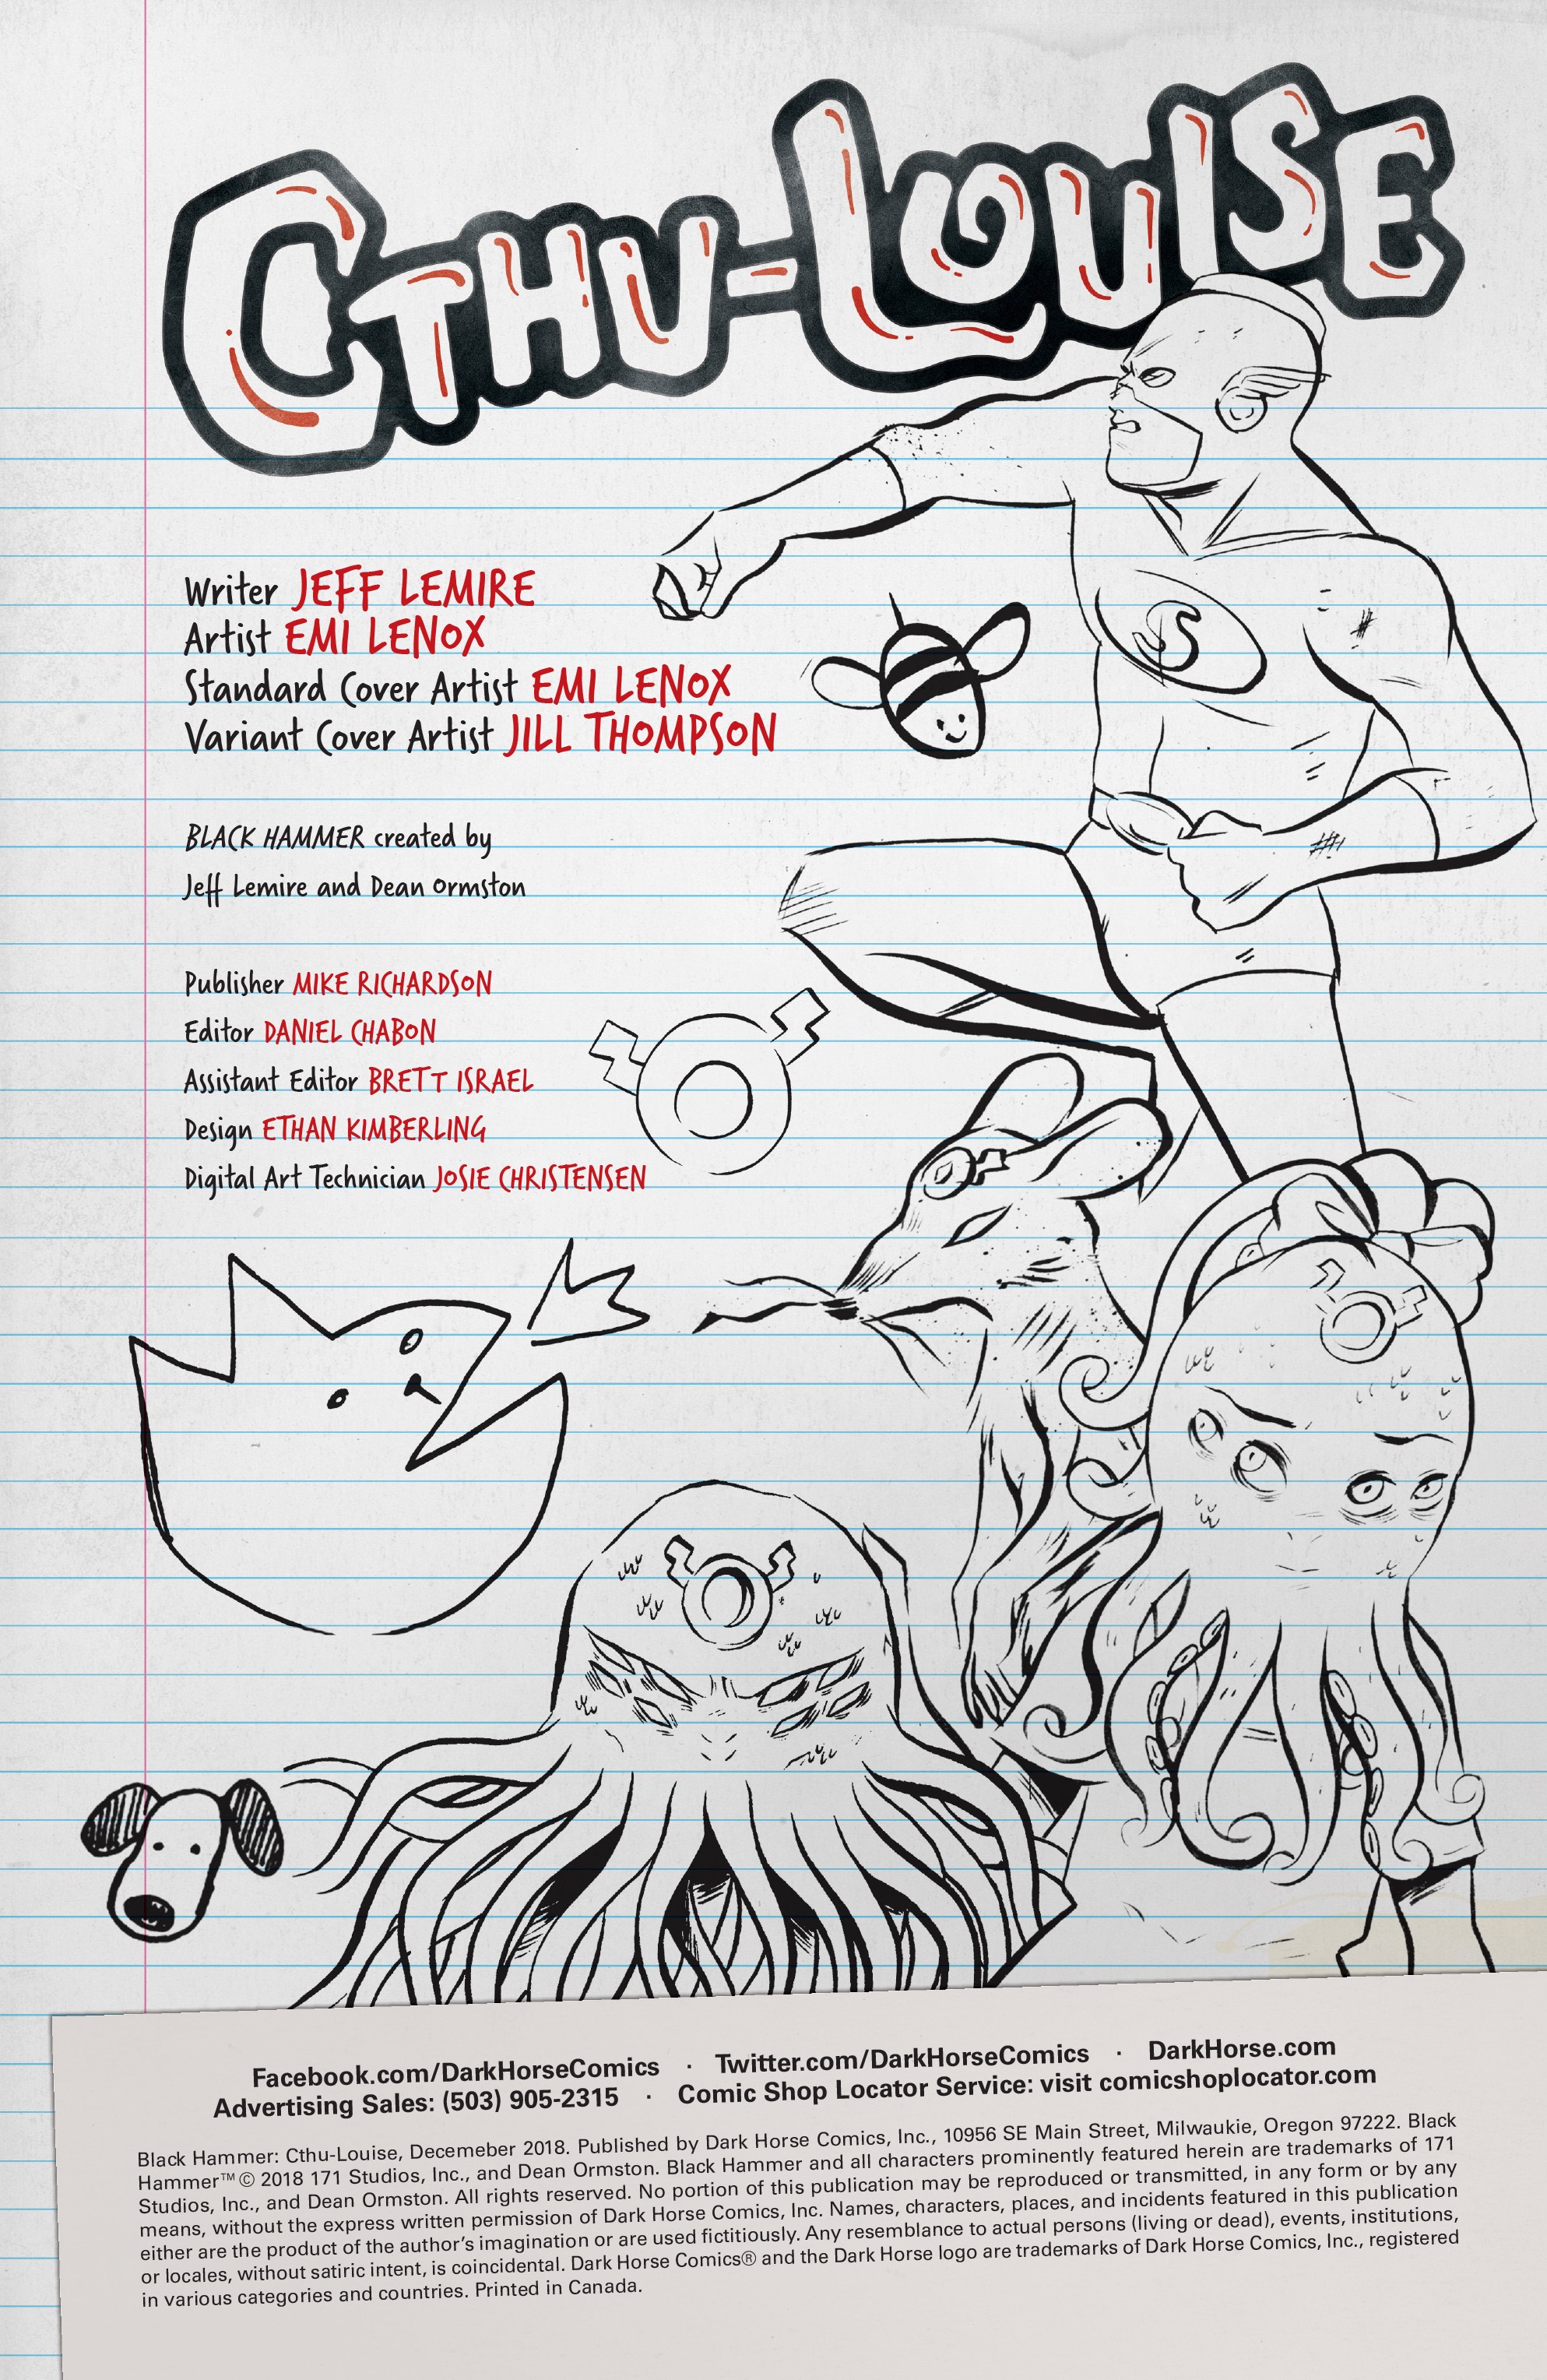 CTHU-LOUISE
Writer JEFF LEMIRE
Artist EMI LENOX
Standard Cover Artist EMI LENOX
Variant Cover Artist JILL THOMPSON
S
BLACK HAMMER created by
Jeff Lemire and Dean Ormston
Publisher MIKE RICHARDSON
Editor DANIEL CHABON
Assistant Editor BRETT ISRAEL
Design ETHAN KIMBERLING
Digital Art Technician JOSIE CHRISTENSEN
Facebook.com/DarkHorseComics · Twitter.com/DarkHorseComics · DarkHorse.com
Advertising Sales: (503) 905-2315 · Comic Shop Locator Service: visit comicshoplocator.com
Black Hammer: Cthu-Louise, Decemeber 2018. Published by Dark Horse Comics, Inc., 10956 SE Main Street, Milwaukie, Oregon 97222. Black
Hammer™ © 2018 171 Studios, Inc., and Dean Ormston. Black Hammer and all characters prominently featured herein are trademarks of 171
Studios, Inc., and Dean Ormston. All rights reserved. No portion of this publication may be reproduced or transmitted, in any form or by any
means, without the express written permission of Dark Horse Comics, Inc. Names, characters, places, and incidents featured in this publication
either are the product of the author's imagination or are used fictitiously. Any resemblance to actual persons (living or dead), events, institutions,
or locales, without satiric intent, is coincidental. Dark Horse Comics® and the Dark Horse logo are trademarks of Dark Horse Comics, Inc., registered
in various categories and countries. Printed in Canada.